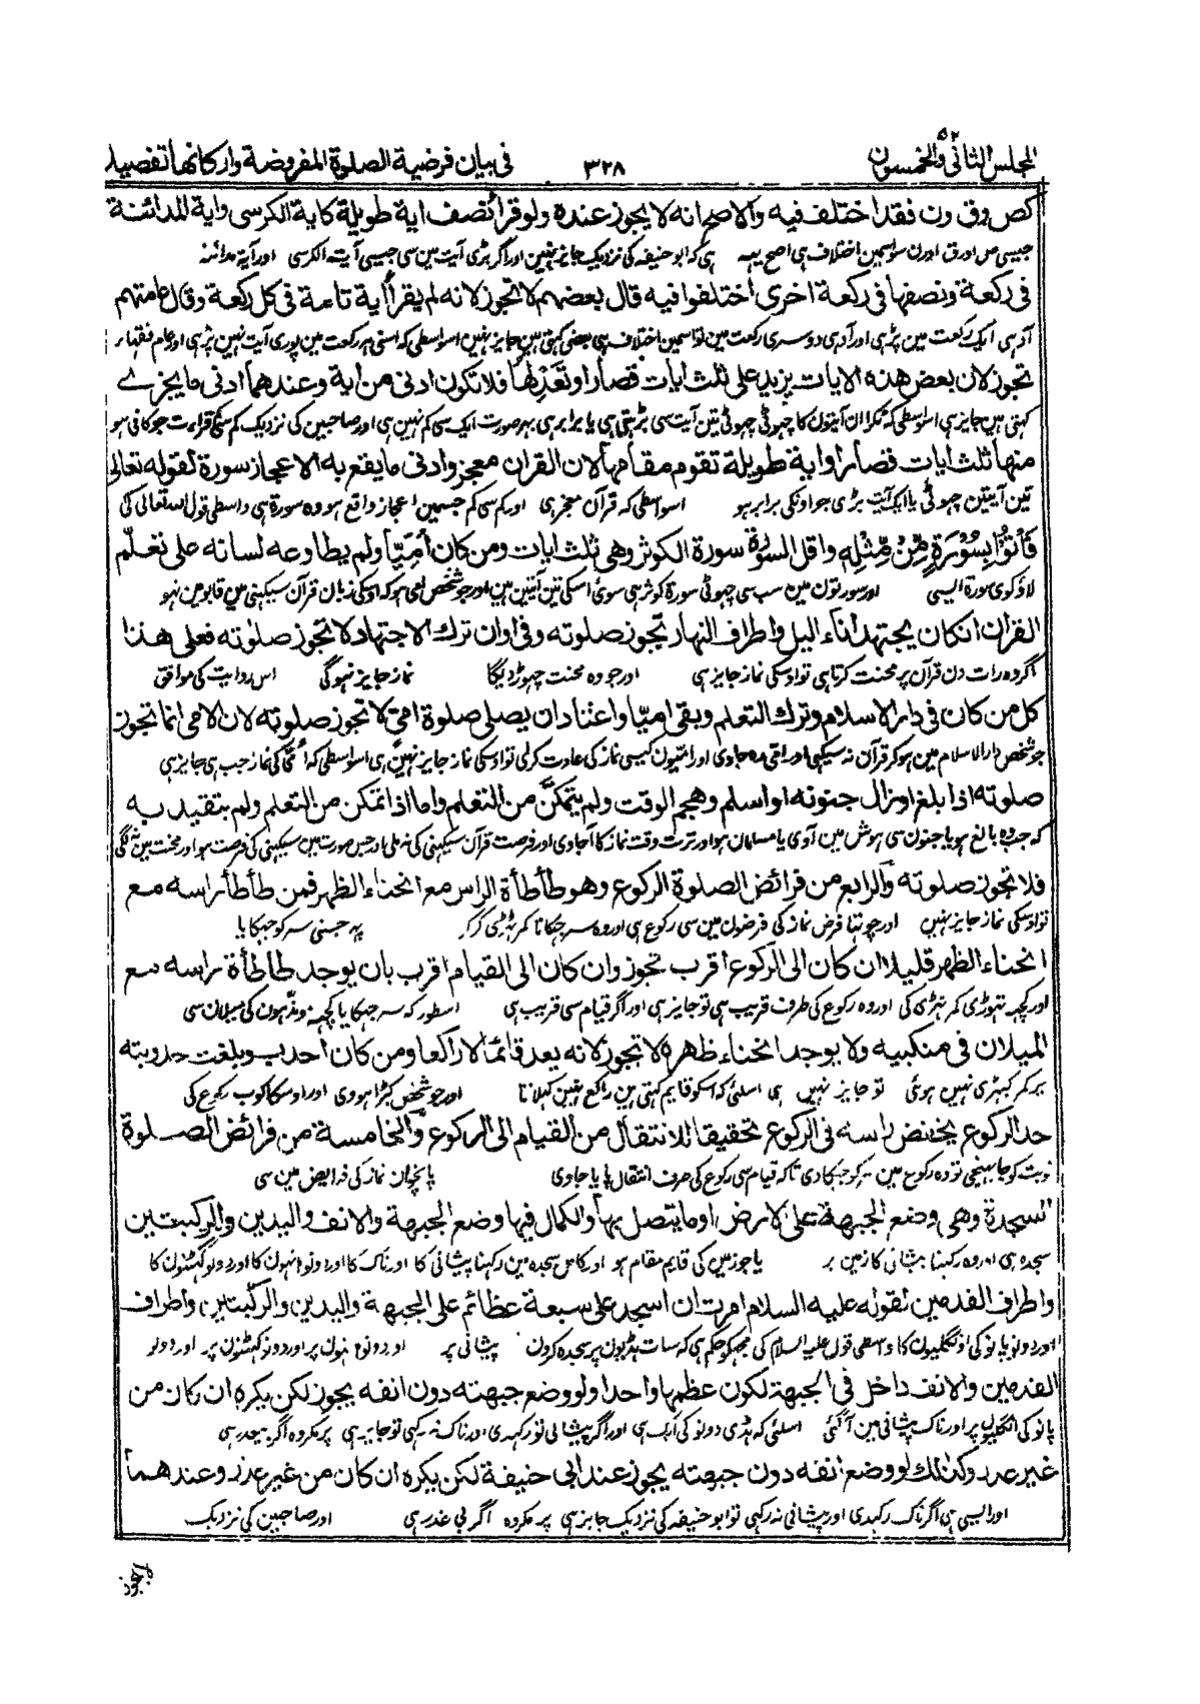 المجلس الثانی والخمسون ۵۲
۳۲۸
فی بیان فرضیة الصلوة المفروضة وارکانها تفصیلا
کص وق ون فقد اختلف فیه والاصح انه لا یجوز عنده ولو قرأ نصف ایة طویلة کایة الکرسی وایة المداینة
جیسی ص اور ق اور ن سو اسمین اختلاف ہی اصح یہہ ہی کہ ابو حنیفہ کی نزدیک جایز نہین اور اگر بڑی آیت مین سی جیسی آیتہ الکرسی اور آیۃ مداینہ
فی رکعة ونصفها فی رکعة اخری اختلفوا فیه قال بعضهم لا تجوز لانه لم یقرأ ایة تامة فی کل رکعة وقال عامتهم
آدہی ایک رکعت مین پڑہی اور آدہی دوسری رکعت مین تو اسمین اختلاف ہی بعضی کہتی ہین جایز نہین اسواسطی کہ اسنی ہر رکعت مین پوری آیت نہین پڑہی اور عام فقہاء
تجوز لان بعض هذه الایات یزید علی ثلث ایات قصار او تعدلها فلا تکون ادنی من ایة وعندهما ادنی ما یجزئ
کہتی ہین جایز ہی اسواسطی کہ ٹکڑا ان آیتون کا چہوٹی چہوٹی تین آیت سی بڑہتی ہی یا برابر ہی بہر صورت ایک سی کم نہین ہی اور صاحبین کی نزدیک کم سی کم قراءت جو کافی ہو
منها ثلث ایات قصار او ایة طویلة تقوم مقامها لان القران معجز وادنی ما یقع به الاعجاز سورة لقوله تعالی
تین آیتین چہوٹی یا ایک آیت بڑی جو اونکی برابر ہو اسواسطی کہ قرآن معجز ہی اور کم سی کم جسمین اعجاز واقع ہو وہ سورۃ ہی واسطی قول اللہ تعالی کی
فَأْتُوْا بِسُوْرَةٍ مِّنْ مِّثْلِهٖ واقل السورة سورة الکوثر وهی ثلث ایات ومن کان أمیّا ولم یطاوعه لسانه علی تعلم
لاؤ کوی سورۃ ایسی اور سورتون مین سب سی چہوٹی سورۃ کوثر ہی سوئی اسکی تین آیتین ہین اور جو شخص امی ہو کہ اوسکی زبان قرآن سیکہنی مین قابو مین نہو
القران ان کان یجتهد اناء الیل واطراف النهار تجوز صلوته وفی اوان ترك الاجتهاد لا تجوز صلوته فعلی هذا
اگر وہ رات دن قرآن پر محنت کرتا ہی تو اوسکی نماز جایز ہی اور جو وہ محنت چہوڑ دیگا نماز جایز نہوگی اس روایت کی موافق
کل من کان فی دار الاسلام وترك التعلم وبقی امیّا واعتاد ان یصلی صلوة امی لا تجوز صلوته لان الامی انما تجوز
جو شخص دار الاسلام مین ہو کر قرآن نہ سیکہی اور امی رہ جاوی اور امیون کیسی نماز کی عادت کرلی تو اوسکی نماز جایز نہین ہی اسواسطی کہ امی کی نماز جب ہی جایز ہی
صلوته اذا بلغ او زال جنونه او اسلم وهجم الوقت ولم یتمکن من التعلم واما اذا تمکن من التعلم ولم یتقید به
کہ جب وہ بالغ ہو یا جنون سی ہوش مین آوی یا مسلمان ہو اور ترت وقت نماز کا آجاوی اور فرصت قرآن سیکہنی کی نہ ملی اور جس صورت مین سیکہنی کی فرصت ہو اور محنت مین نہ لگی
فلا تجوز صلوته والرابع من فرائض الصلوة الرکوع وهو طأطأة الراس مع انحناء الظهر فمن طأطأ راسه مع
تو اوسکی نماز جایز نہین اور چوتہا فرض نماز کی فرضون مین سی رکوع ہی اور وہ سر جہکانا کمر ٹیڑہی کر کر پہر جسنی سر کو جہکایا
انحناء الظهر قلیلا ان کان الی الرکوع اقرب تجوز وان کان الی القیام اقرب بان یوجد طأطأة راسه مع
اور کچہہ تہوڑی کمر ٹیڑہی کی اور وہ رکوع کی طرف قریب ہی تو جایز ہی اور اگر قیام سی قریب ہی اسطور کہ سر جہکایا کچہہ مونڈہون کی میلان سی
المیلان فی منکبیه ولا یوجد انحناء ظهره لا تجوز لانه یعد قائما لا راکعا ومن کان احدب وبلغت حدوبته
پر کمر کبہڑی نہین ہوئی تو جایز نہین ہی اسلئی کہ اسکو قایم کہتی ہین راکع نہین کہلاتا اور جو شخص کبڑا ہووی اور اوسکا کوب رکوع کی
حد الرکوع یخفض راسه فی الرکوع تحقیقا للانتقال من القیام الی الرکوع والخامسة من فرائض الصلوة
نوبت کو جا پہنچی تو وہ رکوع مین سر کو جہکادی تاکہ قیام سی رکوع کی طرف انتقال پایا جاوی پانچوان نماز کی فرایض مین سی
السجدة وهی وضع الجبهة علی الارض او ما یتصل بها والکمال فیها وضع الجبهة والانف والیدین والرکبتین
سجدہ ہی اور وہ رکہنا پیشانی کا زمین پر یا جو زمین کی قایم مقام ہو اور کامل سجدہ مین رکہنا پیشانی کا اور ناک کا اور دونو ہاتہون کا اور دونو گہٹنون کا
واطراف القدمین لقوله علیه السلام امرت ان اسجد علی سبعة عظائم علی الجبهة والیدین والرکبتین واطراف
اور دونو پانو کی اونگلیون کا واسطی قول علیہ السلام کی مجہکو حکم ہی کہ سات ہڈیون پر سجدہ کرون پیشانی پر اور دونو ہاتہون پر اور دونو گہٹنون پر اور دونو
القدمین والانف داخل فی الجبهة لکون عظمها واحدا ولو وضع جبهته دون انفه یجوز لکن یکره ان کان من
پانو کی انگلیون پر اور ناک پیشانی مین آگئی اسلئی کہ ہڈی دونو کی ایک ہی اور اگر پیشانی تو رکہدی اور ناک نہ رکہی تو جایز ہی پر مکروہ اگر بیعذر ہی
غیر عذر وکذلك لو وضع انفه دون جبهته یجوز عند ابی حنیفة لکن یکره ان کان من غیر عذر وعندهما
اور ایسی ہی اگر ناک رکہدی اور پیشانی نہ رکہی تو ابو حنیفہ کی نزدیک جایز ہی پر مکروہ اگر بی عذر ہی اور صاحبین کی نزدیک
لا یجوز